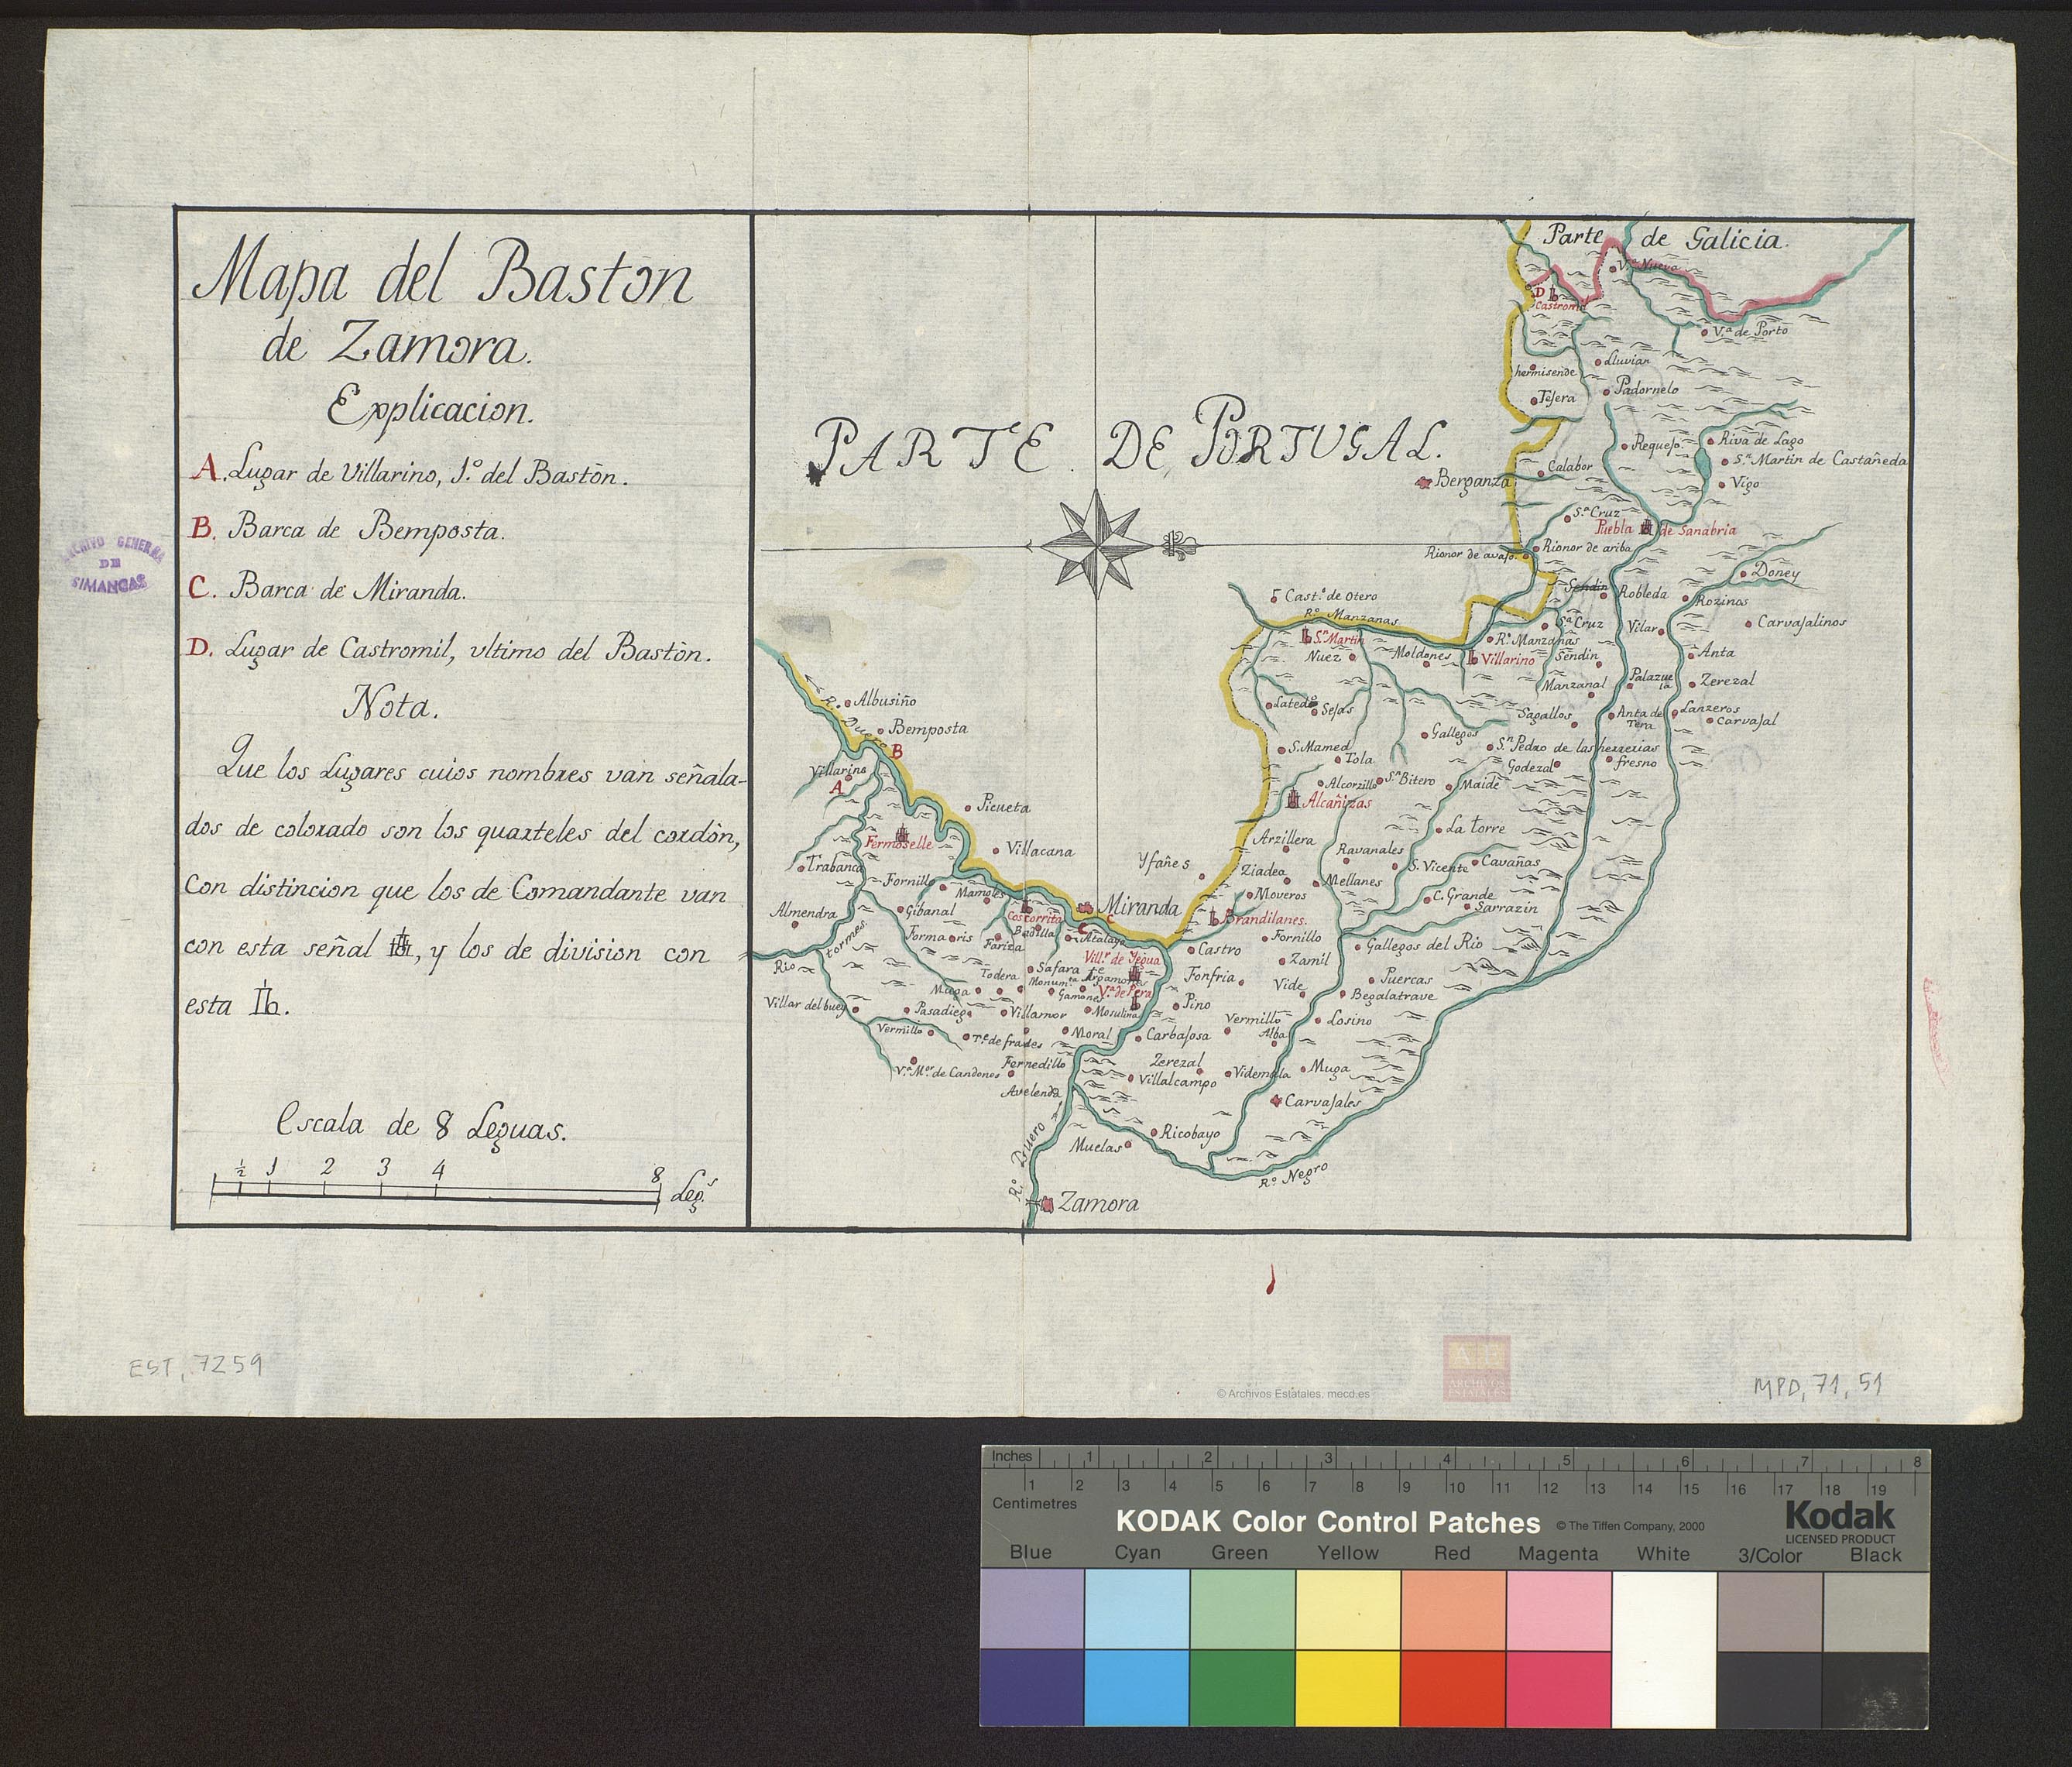 Mapa del Bastòn
de Zamora.
Explicacion.
A. Lugar de Villarino, 1.º del Bastòn.
B. Barca de Bemposta.
C. Barca de Miranda.
D. Lugar de Castromil, vltimo del Bastòn.
Nota.
Que los Lugares cuios nombres van señala-
dos de colorado son los quarteles del cordòn,
Con distincion que los de Comandante van
con esta señal , y los de division con
esta .
Escala de 8 Leguas.
½ 1 2 3 4 8 Leg.s
ARCHIVO GENERAL
DE
SIMANCAS
PARTE DE PORTUGAL.
Parte de Galicia.
V.ª Nueva
D
Castromil
V.ª de Porto
Lluvian
hermisende
Padornelo
Tejera
Requejo
Riva de Lago
S.n Martin de Castañeda
Calabor
Vigo
Berganza
S.ta Cruz
Puebla de Sanabria
Rionor de avajo
Rionor de ariba
Doney
Sendin
Robleda
Rozinos
Cast.º de Otero
R.º Manzanas
S.ta Cruz
Vilar
Carvajalinos
S.n Martin
R.º Manzanas
Nuez
Moldones
Villarino
Sendin
Anta
Manzanal
Palazue
la
Zerezal
Latedo
Sejas
Sagallos
Anta de
Tera
Lanzeros
Carvajal
Gallegos
S. Mamed
Tola
S.n Pedro de las herrerias
Godezal
fresno
Alcorzillo
S.n Bitero
Maide
Alcañizas
La torre
Arzillera
Ravanales
S. Vicente
Cavañas
Yfañes
Ziadea
Mellanes
Moveros
C. Grande
Sarrazin
Brandilanes.
Castro
Fornillo
Gallegos del Rio
Zamil
Fonfria
Vide
Puercas
Begalatrave
Pino
Vermillo
Losino
Alba
Carbajosa
Zerezal
Villalcampo
Videmala
Muga
Carvajales
Ricobayo
Muelas
R.º Negro
R.º Duero
Zamora
R. Duero
Albusiño
Bemposta
B
Villarino
A
Picueta
Fermoselle
Villacana
Trabanca
Fornillo
Mamoles
Miranda
C
Almendra
Gibanal
Coscorrita
Badilla
Formaoris
Fariza
Atalaya
Vill.r de Yegua
Rio tormes
Todera
Safara
Argamona
Monum.ta
Muga
Gamones
V.ª de Pera
Villar del buey
Pasadiego
Villamor
Mosulina
Vermillo
T.e de frades
Moral
Fornedillo
V.ª M.or de Candones
Avelenda
EST, 7259
MPD, 71, 51
© Archivos Estatales. mecd.es
ARCHIVOS
ESTATALES
Inches 1 2 3 4 5 6 7 8
1 2 3 4 5 6 7 8 9 10 11 12 13 14 15 16 17 18 19
Centimetres
KODAK Color Control Patches © The Tiffen Company, 2000
Kodak
LICENSED PRODUCT
Blue Cyan Green Yellow Red Magenta White 3/Color Black